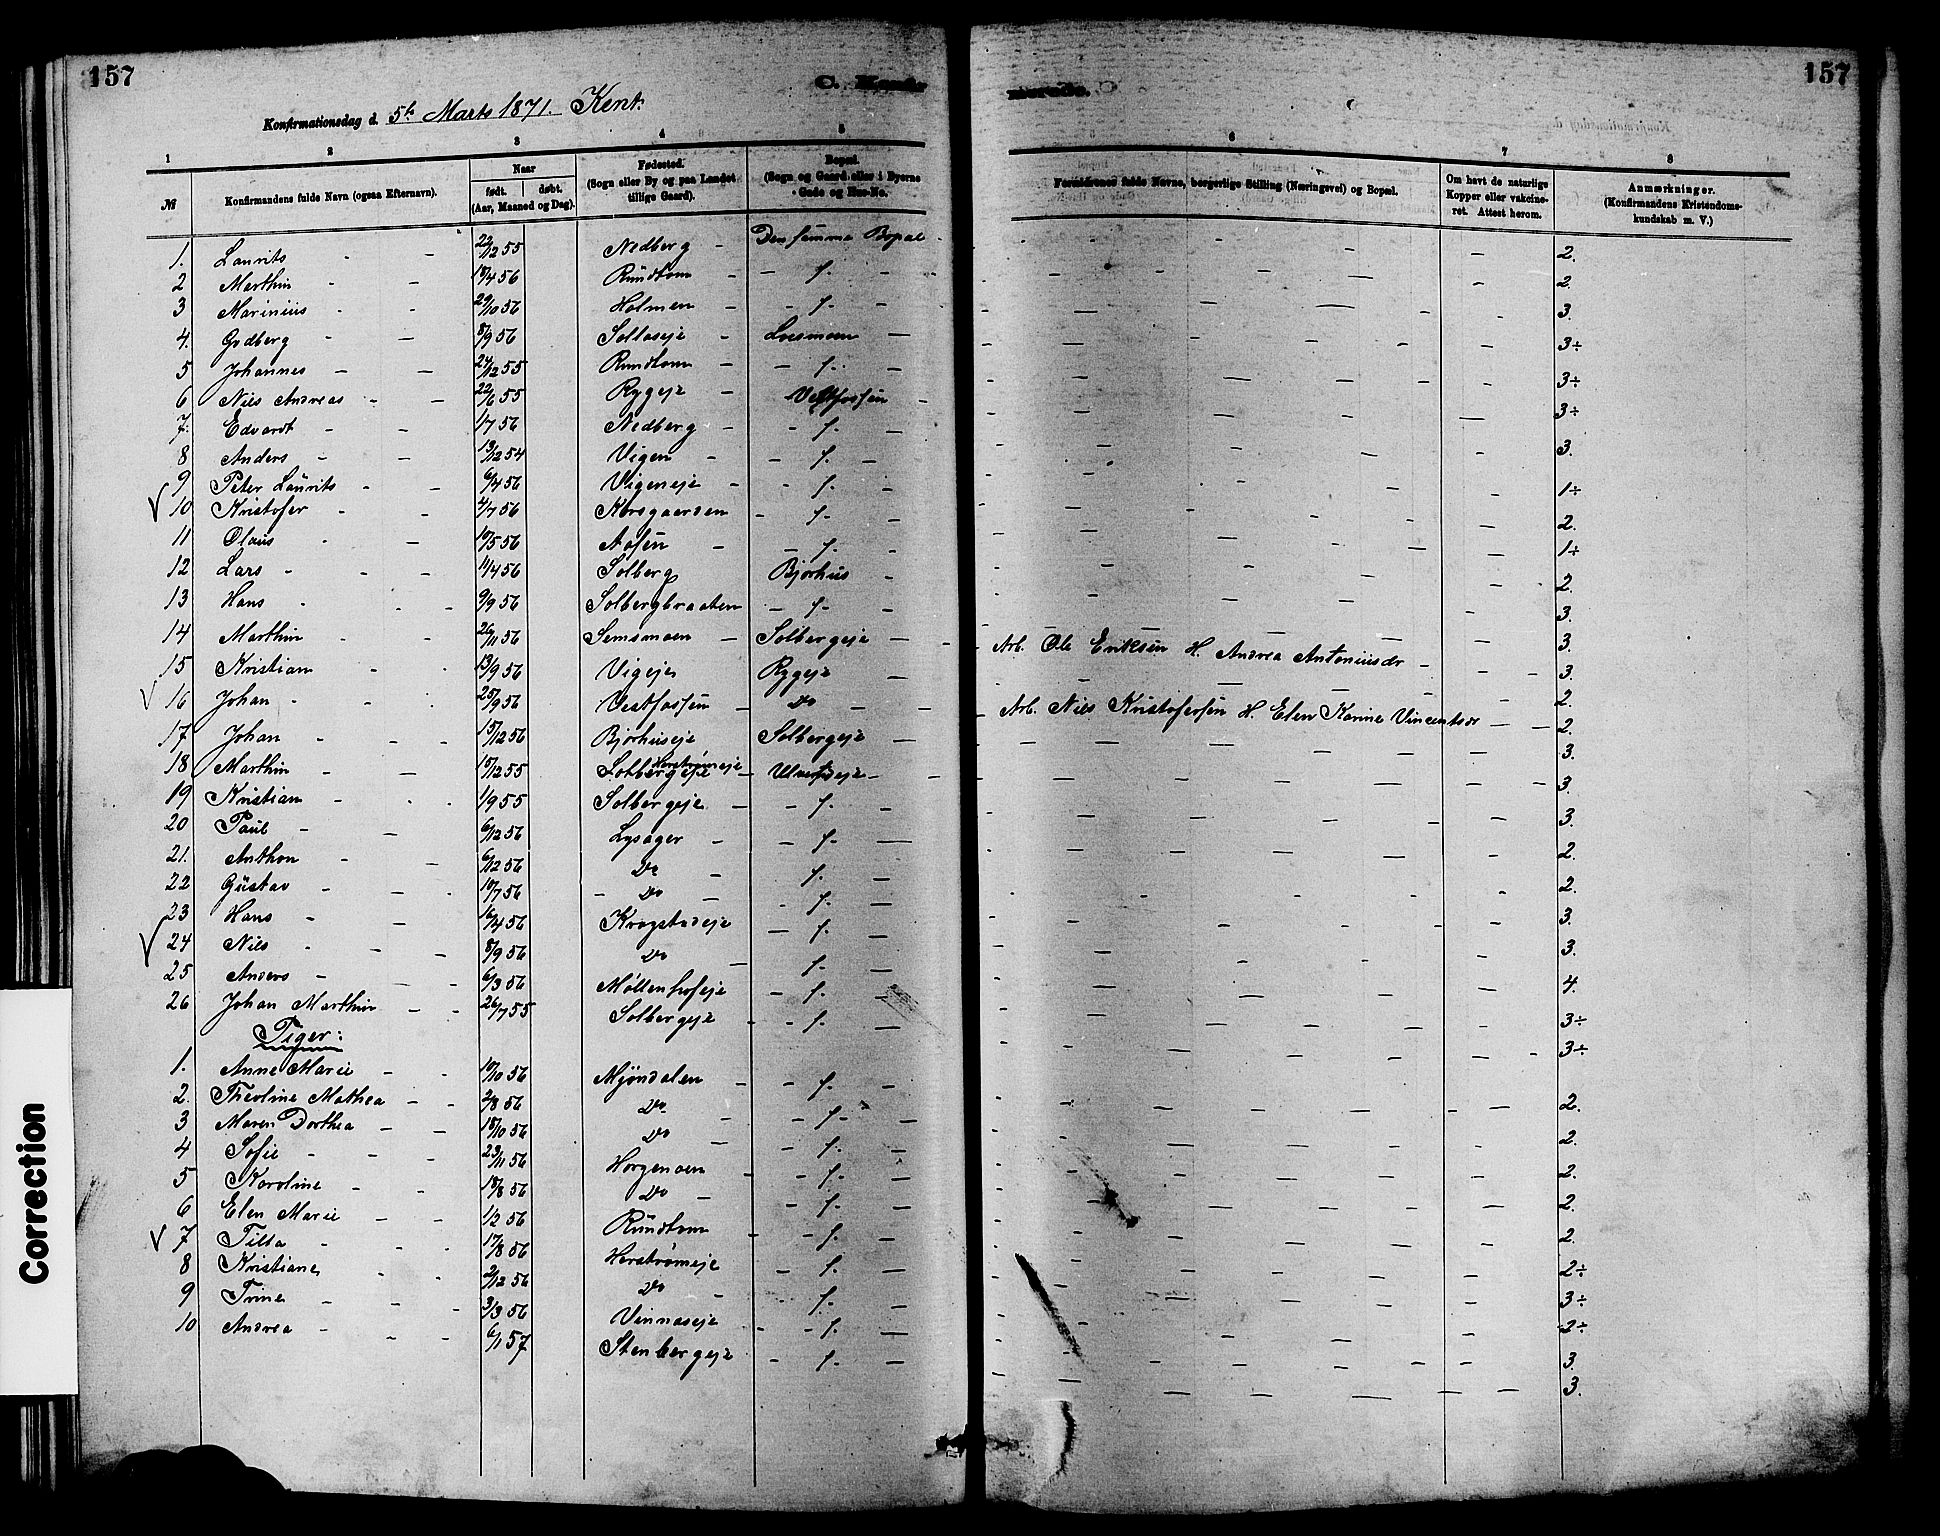 157
C. Konfir
Konfirmationsdag d. 5te Marts 1871. Kent.
1 2 3 4 5
№ Konfirmandens fulde Navn (ogsaa Efternavn). Naar født. døbt. (Aar, Maaned og Dag). Fødested. (Sogn eller By og paa Landet tillige Gaard). Bopæl. (Sogn og Gaard eller i Byerne Gade og Hus-No.
1. Laurits - - 22/12 55 Nedberg - Den samma Bopæl
2 Marthin - - 18/4 56 Rundtom - - f. -
3 Marinius - - 29/10 56 Holmen - - f. -
4. Godberg - - 8/9 56 Sollaseje - Loesmoen -
5 Johannes - - 24/12 55 Rundtom - - f. -
6 Niels Andreas - - 22/6 55 Rygeje - Vestfossen -
7. Edvardt - - 1/7 56 Nedberg - - f. -
8 Anders - - 13/12 54 Vigen - - f. -
9 Peter Laurits - - 6/4 56 Vigeneje - - f. -
10 Kristofer - - 4/7 56 Korsgaarden - f. -
11 Olaus - - 10/5 56 Aasen - - f. -
12 Lars - - - 11/4 56 Solberg Bjørhus -
13 Hans - - - 9/9 56 Solbergbraaten - f. -
14 Marthin - - 26/11 56 Semsmoen - Solbergeje -
15 Kristian - - 13/9 56 Vigeje Rygeje -
16 Johan - - 25/9 56 Vestfossen - Do -
17 Johan - - - 15/12 56 Bjørhuseje Solbergeje -
18 Marthin - - - 15/12 55 Solbergeje Herstrømeje - Ulverudeje -
19 Kristian - - - 1/9 55 Solbergeje - - f. -
20 Paul - - 6/12 56 Lysager - - f. -
21. Anthon - - 6/12 56 Do - f. -
22 Gustav - - - 10/7 56 - Do - f. -
23 Hans - - 16/4 56 Krogstadeje - f. -
24 Nils - - - 8/9 56 Do - f. -
25 Anders - - - 6/3 56 Møllenhofeje - f. -
26 Johan Marthin - - 26/7 55 Solbergeje - f. -
Piger:
1. Anne Marie - - 10/10 56 Mjøndalen - - f. -
2. Theoline Mathea - - 2/8 56 Do - f. -
3 Maren Dorthea - - 18/10 56 Do - - f. -
4 Sofie - - - 23/11 56 Horgenoen - - f. -
5 Karoline - - 18/8 56 Do - - f. -
6 Elen Marie - - 1/2 56 Rundtom - - f. -
7 Tilla - - - 17/8 56 Herstrømeje - f. -
8 Kristiane - - 2/12 56 Do - - f. -
9 Trine - - - 3/3 56 Vinnaseje - - f. -
10 Andrea - - - 6/1 57 Stenbergeje - f. -
157
6 7 8
Forældrenes fulde Navne, borgerlige Stilling (Næringsvei) og Bopæl. Om havt de naturlige Kopper eller vakcineret. Attest herom. Anmærkninger. (Konfirmandens Kristendomskundskab m. V.)
2.
2.
3.
3÷
3÷
3÷
3.
1÷
2.
1÷
2.
3.
Arb. Ole Eriksen H. Andrea Antoniusdr - 3.
3.
2.
Arb. Niels Kristofersen H. Elen Karine Vincentsdr 2.
3.
3.
3.
2.
2.
3.
3.
4.
3÷
3÷
2.
2.
2.
2.
2.
2÷
3÷
2÷
3.
3.
Correction